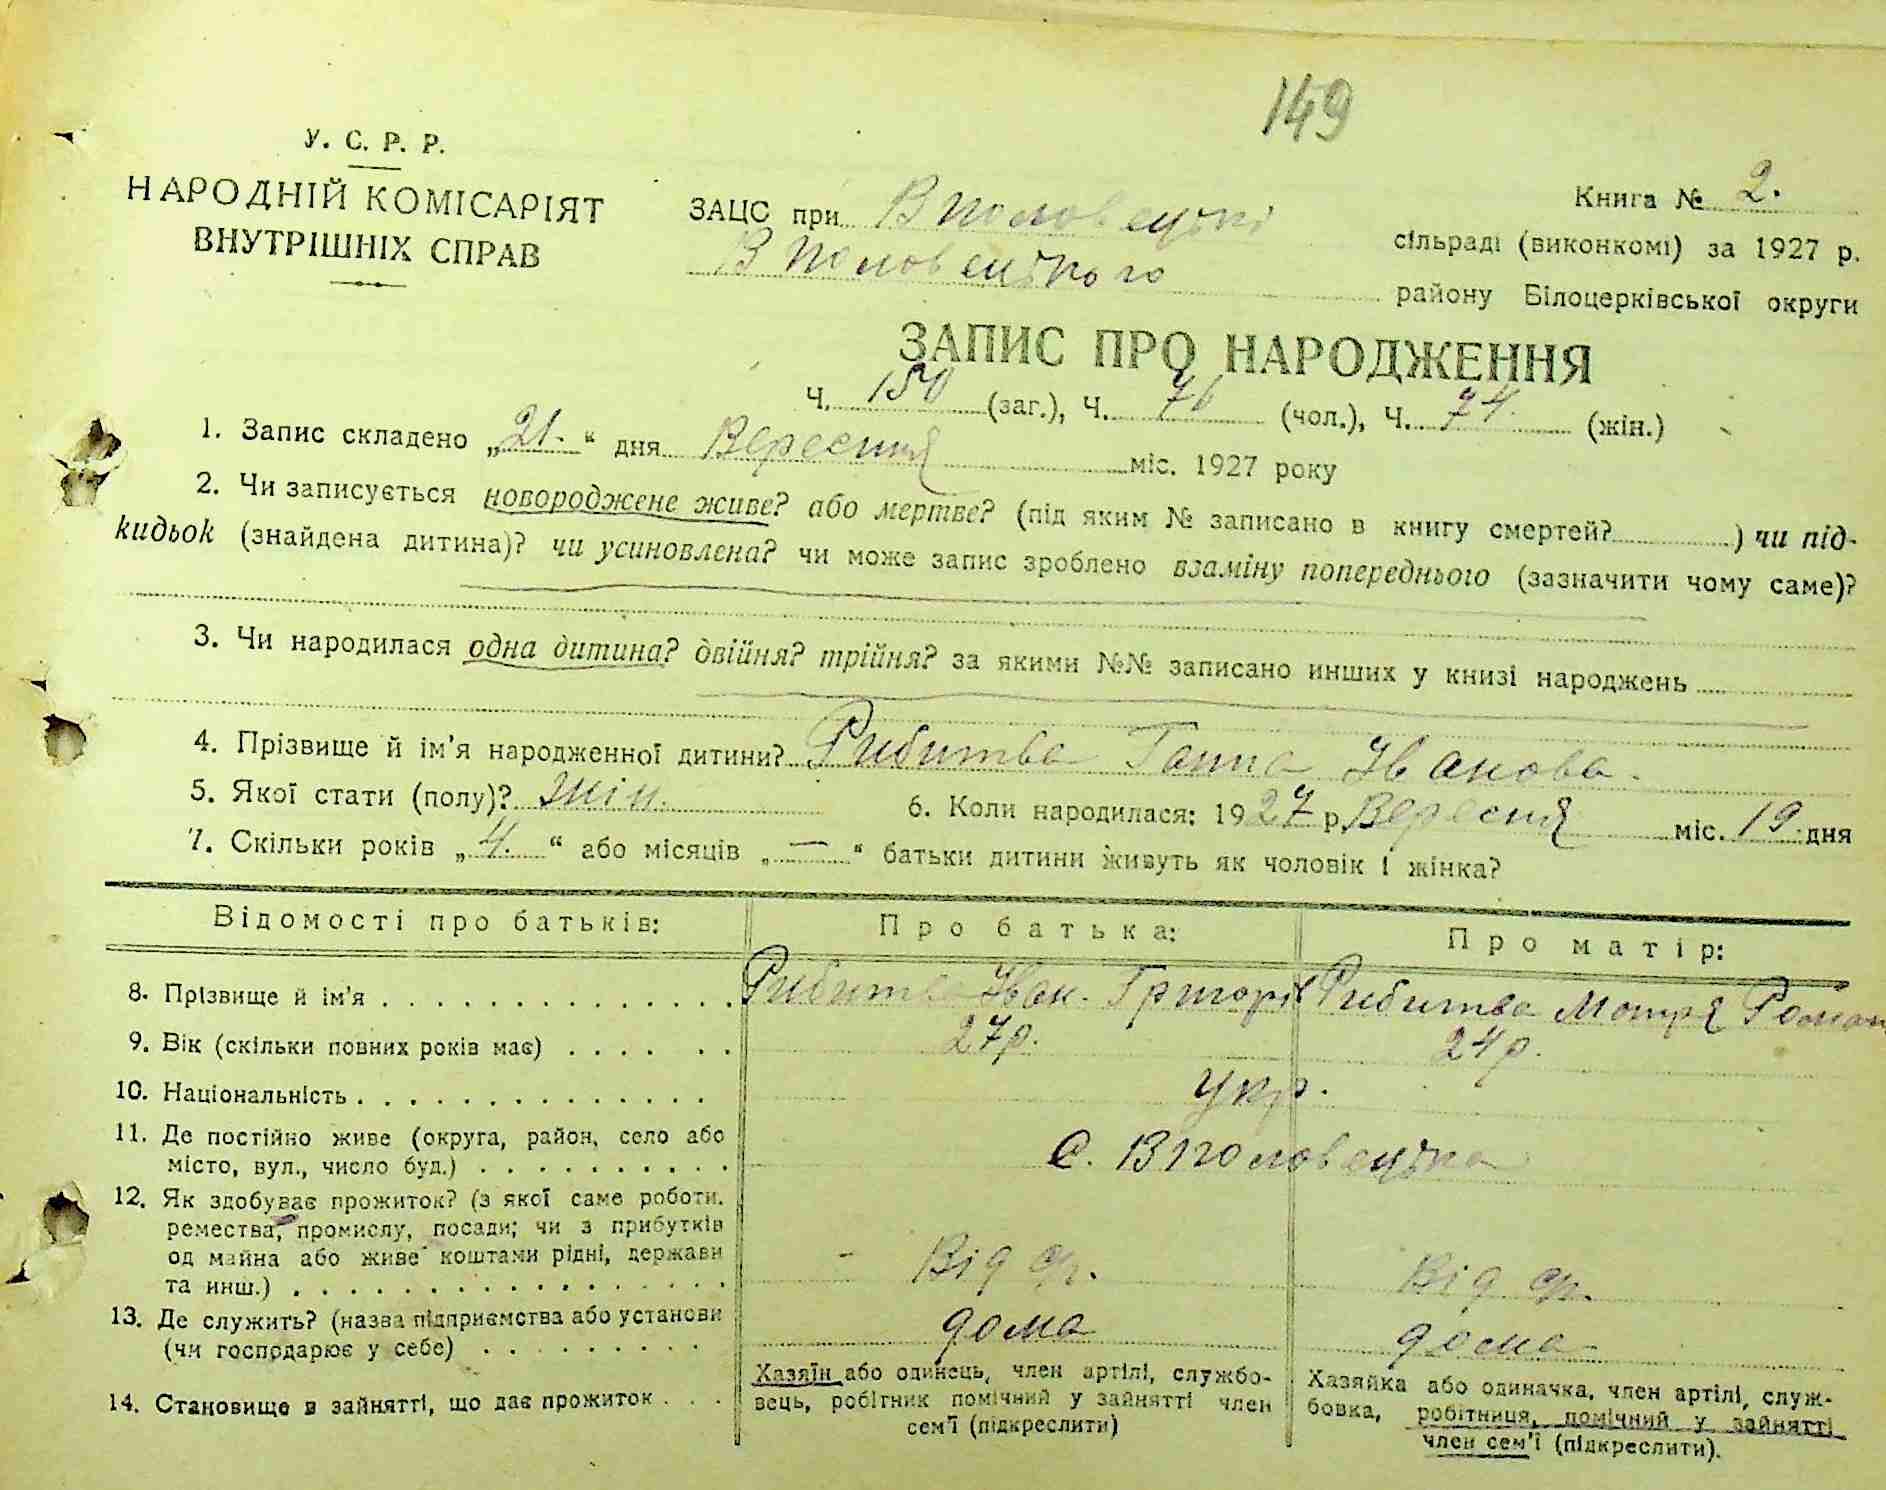 149
У. С. Р. Р.
НАРОДНІЙ КОМІСАРІЯТ
ВНУТРІШНІХ СПРАВ
ЗАЦС при В Половецькі
Книга № 2.
сільраді (виконкомі) за 1927 р.
В Половецького
району Білоцерківської округи
ЗАПИС ПРО НАРОДЖЕННЯ
Ч. 150 (заг.), Ч. 76 (чол.), Ч. 74. (жін.)
1. Запис складено „21.“ дня Вересня міс. 1927 року
2. Чи записується новороджене живе? або мертве? (під яким № записано в книгу смертей? ) чи під-
кидьок (знайдена дитина)? чи усиновлена? чи може запис зроблено взаміну попереднього (зазначити чому саме)?
3. Чи народилася одна дитина? двійня? трійня? за якими №№ записано инших у книзі народжень
4. Прізвище й ім'я народженної дитини? Рибитва Ганна Іванова.
5. Якої стати (полу)? Жін. 6. Коли народилася: 1927 р. Вересня міс. 19 дня
7. Скільки років „4.“ або місяців „—“ батьки дитини живуть як чоловік і жінка?
Відомості про батьків: Про батька: Про матір:
8. Прізвище й ім'я . . . . . . . . . . . . . . Рибитва Іван. Григорів Рибитва Мотря Роман
9. Вік (скільки повних років має) . . . . . . 27р. 24р.
10. Національність . . . . . . . . . . . . . . Укр.
11. Де постійно живе (округа, район, село або
місто, вул., число буд.) . . . . . . . . . . с. В Половецька
12. Як здобуває прожиток? (з якої саме роботи.
ремества, промислу, посади; чи з прибутків
од майна або живе коштами рідні, держави
та инш.) . . . . . . . . . . . . . . . . . - Від ср. Від ср.
13. Де служить? (назва підприємства або установи
(чи господарює у себе) . . . . . . . . . дома дома
14. Становище в зайнятті, що дає прожиток . . .
Хазяїн або одинець, член артілі, службо-
вець, робітник помічний у зайнятті член
сем'ї (підкреслити)
Хазяйка або одиначка, член артілі, служ-
бовка, робітниця, помічний у зайнятті
член сем'ї (підкреслити).